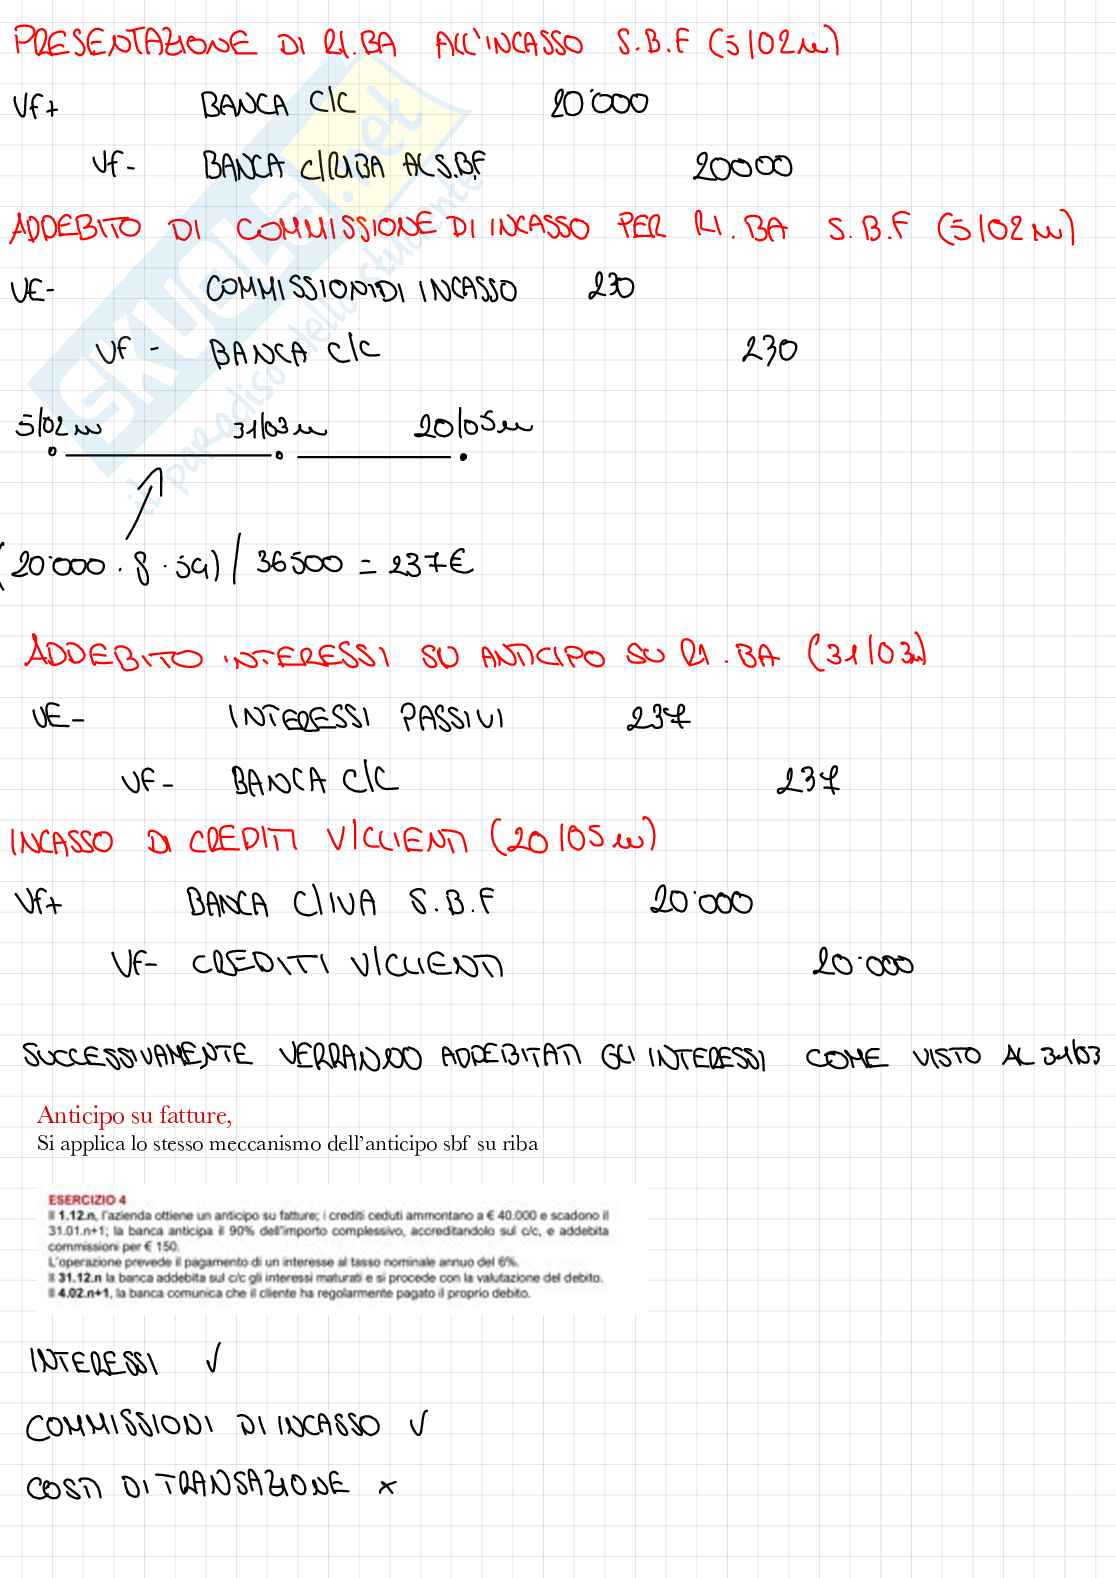 PRESENTAZIONE DI RI.BA ALL'INCASSO S.B.F (5/02 n)
VF+ BANCA C/C 20'000
VF- BANCA C/RIBA AL S.B.F 20000
ADDEBITO DI COMMISSIONE DI INCASSO PER RI.BA S.B.F (5/02 n)
VE- COMMISSIONI DI INCASSO 230
VF- BANCA C/C 230
5/02 n 31/03 n 20/05 n
(20'000 . 8 . 54) / 36500 = 237€
ADDEBITO INTERESSI SU ANTICIPO SU RI.BA (31/03n)
VE- INTERESSI PASSIVI 237
VF- BANCA C/C 237
INCASSO DI CREDITI V/CLIENTI (20/05 n)
VF+ BANCA C/IVA S.B.F 20'000
VF- CREDITI V/CLIENTI 20'000
SUCCESSIVAMENTE VERRANDO ADDEBITATI GLI INTERESSI COME VISTO AL 31/03
Anticipo su fatture,
Si applica lo stesso meccanismo dell'anticipo sbf su riba
ESERCIZIO 4
Il 1.12.n, l'azienda ottiene un anticipo su fatture; i crediti ceduti ammontano a € 40.000 e scadono il
31.01.n+1; la banca anticipa il 90% dell'importo complessivo, accreditandolo sul c/c, e addebita
commissioni per € 150.
L'operazione prevede il pagamento di un interesse al tasso nominale annuo del 6%.
Il 31.12.n la banca addebita sul c/c gli interessi maturati e si procede con la valutazione del debito.
Il 4.02.n+1, la banca comunica che il cliente ha regolarmente pagato il proprio debito.
INTERESSI ✓
COMMISSIONI DI INCASSO ✓
COSTI DI TRANSAZIONE ×
SKUOLA.net
il paradiso dello studente